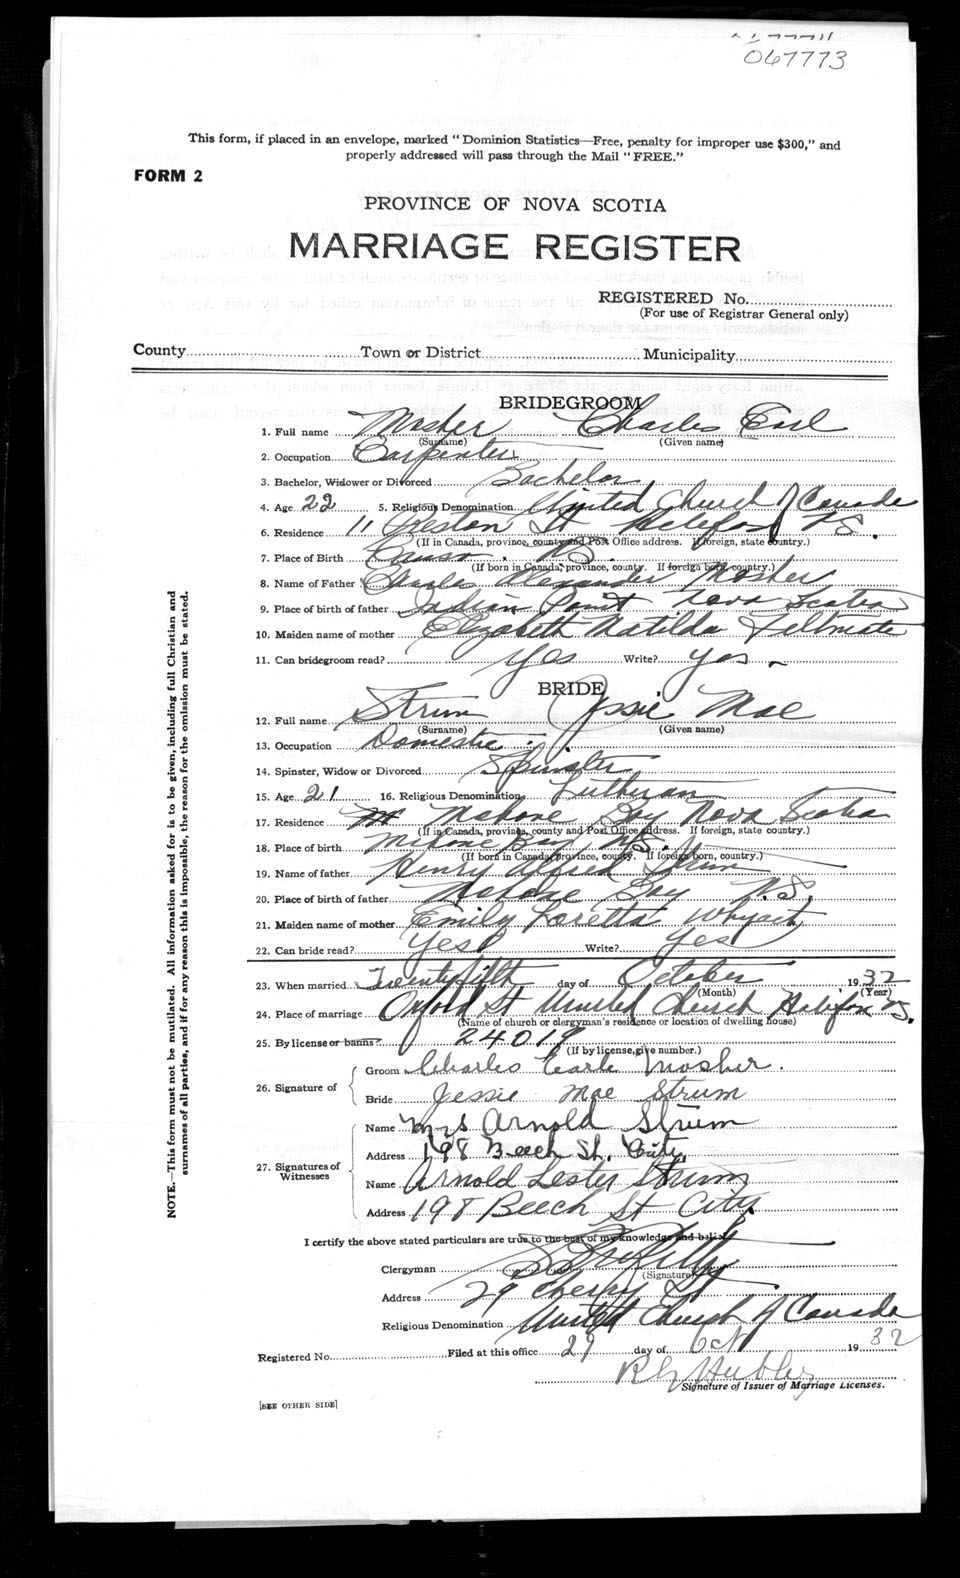 067773
This form, if placed in an envelope, marked "Dominion Statistics—Free, penalty for improper use $300," and
properly addressed will pass through the Mail "FREE."
FORM 2
PROVINCE OF NOVA SCOTIA
MARRIAGE REGISTER
REGISTERED No.
(For use of Registrar General only)
County Town or District Municipality
BRIDEGROOM
1. Full name Mosher Charles Earl
(Surname) (Given name)
2. Occupation Carpenter
3. Bachelor, Widower or Divorced Bachelor
4. Age 22 5. Religious Denomination United Church of Canada
6. Residence 11 Preston St Halifax N.S.
(If in Canada, province, county and Post Office address. If foreign, state country.)
7. Place of Birth Canso. N.S.
(If born in Canada, province, county. If foreign born, country.)
8. Name of Father Charles Alexander Mosher
9. Place of birth of father Indian Point Nova Scotia
10. Maiden name of mother Elizabeth Matilda Feltmate
11. Can bridegroom read? Yes Write? yes
BRIDE
12. Full name Strum Jessie Mae
(Surname) (Given name)
13. Occupation Domestic
14. Spinster, Widow or Divorced Spinster
15. Age 21 16. Religious Denomination Lutheran
17. Residence Mahone Bay Nova Scotia
(If in Canada, province, county and Post Office address. If foreign, state country.)
18. Place of birth Mahone Bay N.S.
(If born in Canada, province, county. If foreign born, country.)
19. Name of father Henry Alfred Strum
20. Place of birth of father Mahone Bay N.S.
21. Maiden name of mother Emily Loretta Whynacht
22. Can bride read? Yes Write? Yes
23. When married Twentyfifth day of October 1932
(Month) (Year)
24. Place of marriage Oxford St United Church Halifax N.S.
(Name of church or clergyman's residence or location of dwelling house)
25. By license or banns? 24019
(If by license, give number.)
26. Signature of
Groom Charles Earle Mosher.
Bride Jessie Mae Strum
27. Signatures of Witnesses
Name Mrs Arnold Strum
Address 198 Beech St. City.
Name Arnold Lester Strum
Address 198 Beech St City
I certify the above stated particulars are true to the best of my knowledge and belief
Clergyman
(Signature)
Address 29 St
Religious Denomination United Church of Canada
Registered No. Filed at this office 29 day of Oct 1932
Signature of Issuer of Marriage Licenses.
[SEE OTHER SIDE]
NOTE.—This form must not be mutilated. All information asked for is to be given, including full Christian and
surnames of all parties, and if for any reason this is impossible, the reason for the omission must be stated.